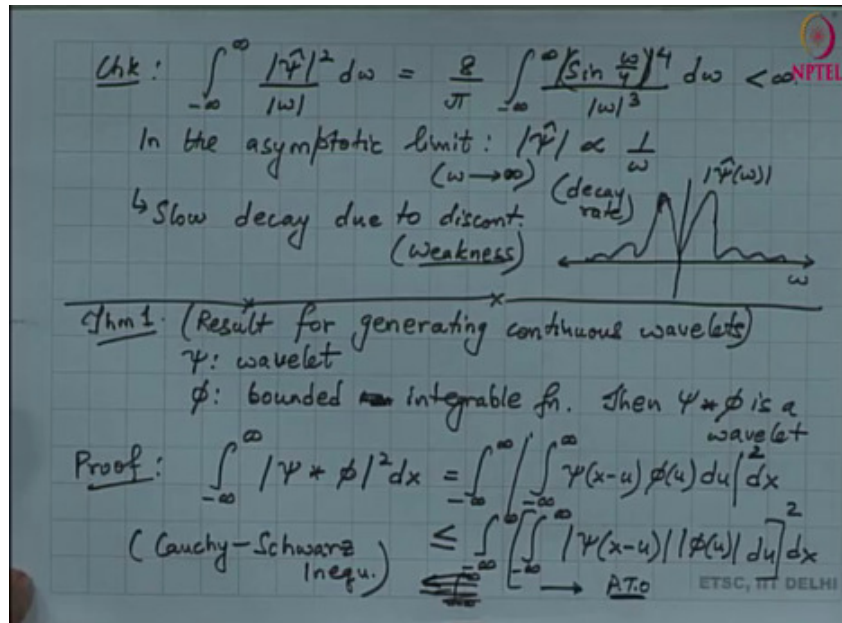 Chk: ∫_{-∞}^{∞} |ψ̂|²/|ω| dω = 8/π ∫_{-∞}^{∞} (Sin ω/4)^4/|ω|³ dω < ∞
NPTEL
In the asymptotic limit: |ψ̂| ∝ 1/ω
(ω→∞) (decay rate)
|ψ̂(ω)|
↳ Slow decay due to discont.
(weakness)
ω
Thm 1. (Result for generating continuous wavelets)
ψ: wavelet
φ: bounded integrable fn. Then ψ * φ is a wavelet
Proof: ∫_{-∞}^{∞} |ψ * φ|² dx = ∫_{-∞}^{∞} |∫_{-∞}^{∞} ψ(x-u) φ(u) du|² dx
(Cauchy-Schwarz Inequ.) ≤ ∫_{-∞}^{∞} [∫_{-∞}^{∞} |ψ(x-u)| |φ(u)| du]² dx
→ P.T.O
ETSC, IIT DELHI